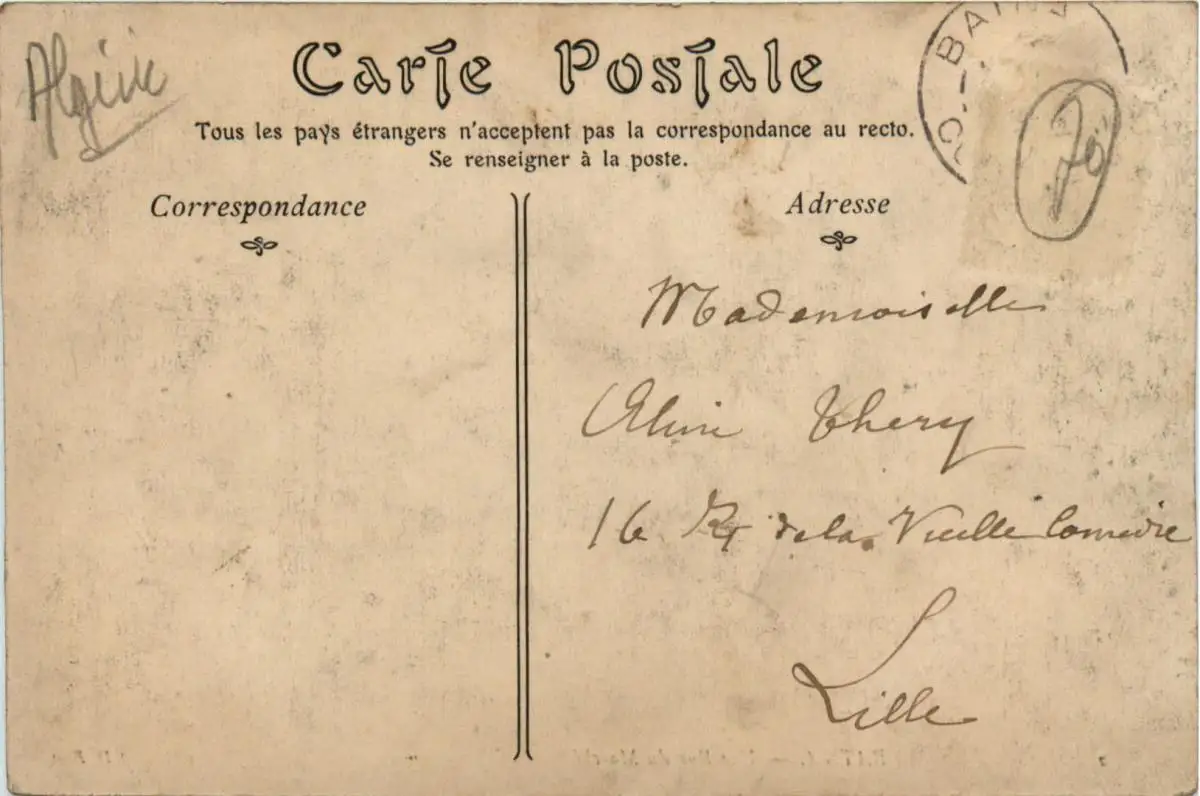 Algérie
Carte Postale
BAINS
70
Tous les pays étrangers n'acceptent pas la correspondance au recto.
Se renseigner à la poste.
Correspondance
Adresse
Mademoiselle
Aline Thery
16 Rue de la Vieille Comédie
Lille